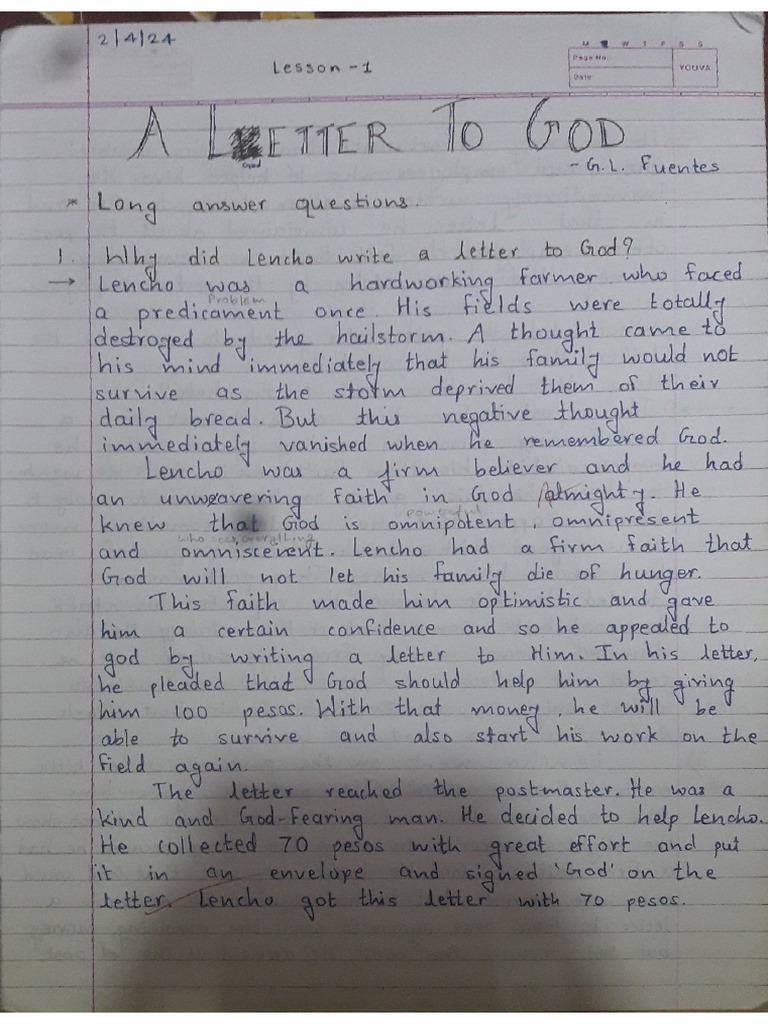 2/4/24
M T W T F S S
Page No.
YOUVA
Date:
Lesson - 1
A LETTER TO GOD
- G.L. Fuentes
* Long answer questions.
1. Why did Lencho write a letter to God?
→ Lencho was a hardworking farmer who faced
Problem
a predicament once. His fields were totally
destroyed by the hailstorm. A thought came to
his mind immediately that his family would not
survive as the storm deprived them of their
daily bread. But this negative thought
immediately vanished when he remembered God.
Lencho was a firm believer and he had
an unweavering faith in God Almighty. He
powerful
knew that God is omnipotent, omnipresent
who sees everything
and omniscient. Lencho had a firm faith that
God will not let his family die of hunger.
This faith made him optimistic and gave
him a certain confidence and so he appealed to
god by writing a letter to Him. In his letter,
he pleaded that God should help him by giving
him 100 pesos. With that money, he will be
able to survive and also start his work on the
field again.
The letter reached the postmaster. He was a
kind and God-Fearing man. He decided to help Lencho.
He collected 70 pesos with great effort and put
it in an envelope and signed 'God' on the
letter. Lencho got this letter with 70 pesos.